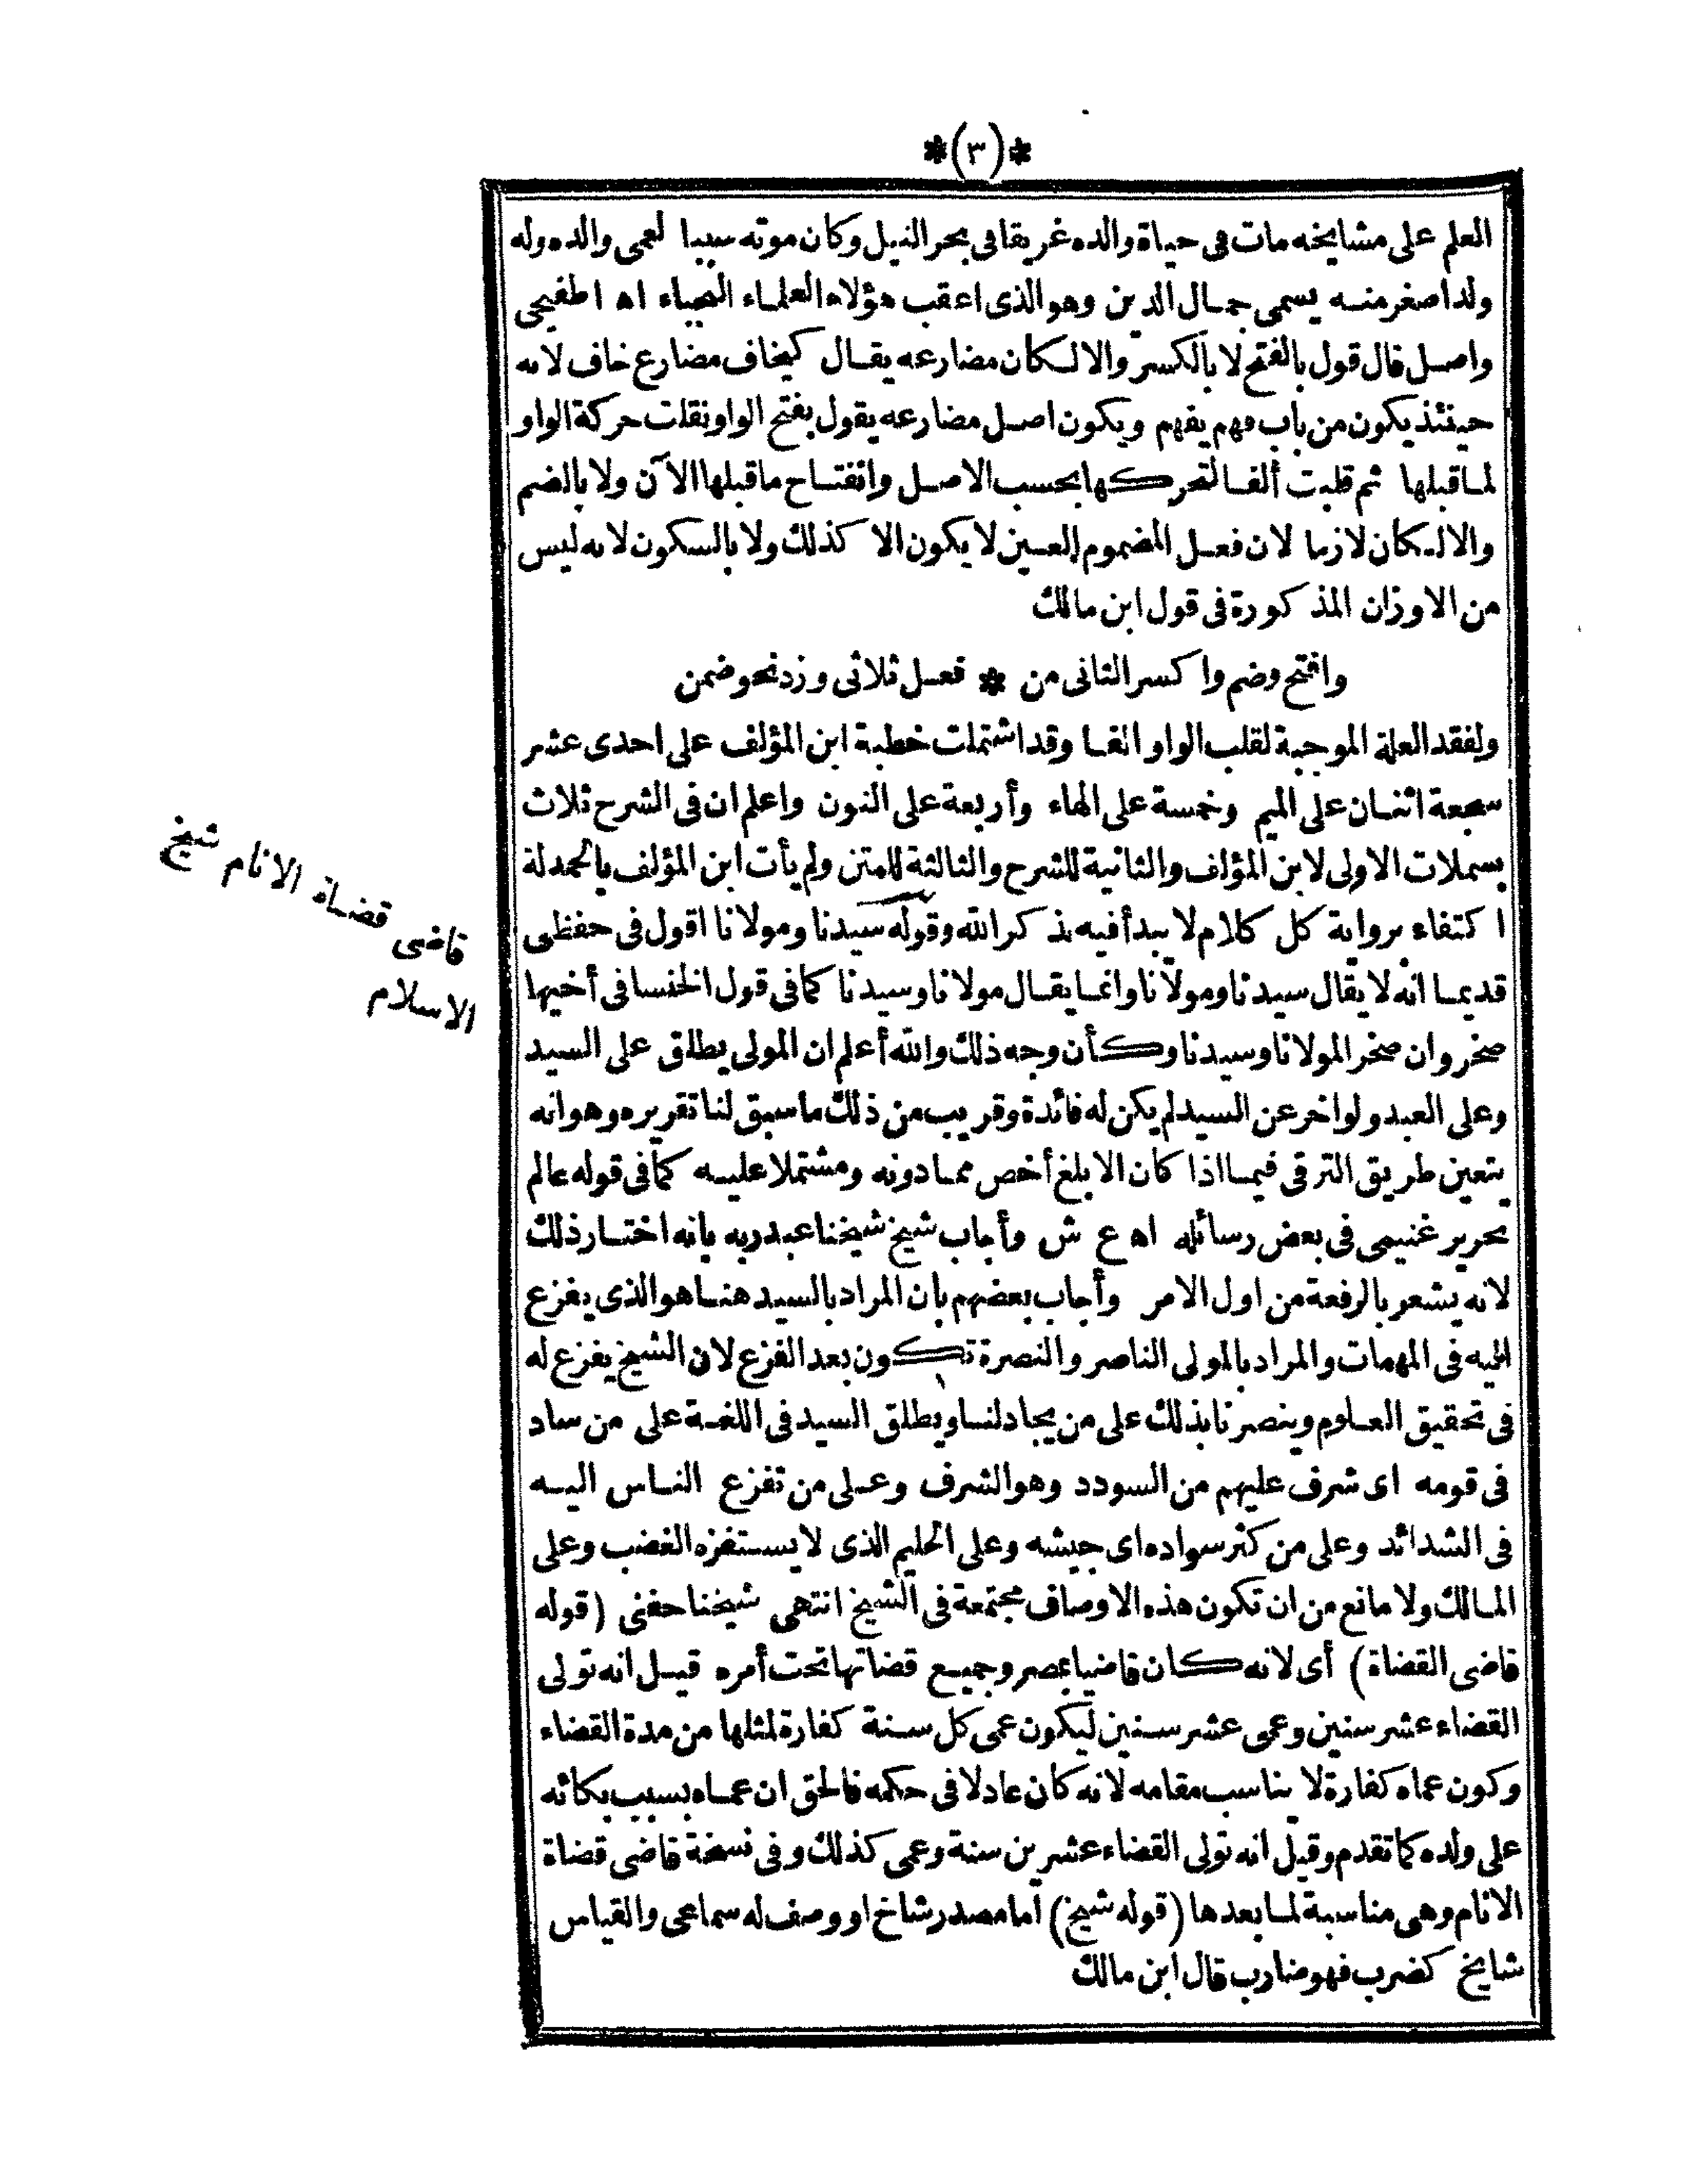 *(٣)*
العلم على مشايخه مات فى حياة والده غريقا فى بحر النيل وكان موته سببا لعمى والده وله
ولد اصغر منه يسمى جمال الدين وهو الذى اعقب هؤلاء العلماء النجباء اه اطفيحى
واصل قال قول بالفتح لا بالكسر والا لكان مضارعه يقال كيخاف مضارع خاف لانه
حينئذ يكون من باب فهم يفهم ويكون اصل مضارعه يقول بفتح الواو نقلت حركة الواو
لما قبلها ثم قلبت ألفا لتحركها بحسب الاصل وانفتاح ما قبلها الآن ولا بالضم
والا لكان لازما لان فعل المضموم العين لا يكون الا كذلك ولا بالسكون لانه ليس
من الاوزان المذكورة فى قول ابن مالك
وافتح وضم واكسر الثانى من * فعل ثلاثى وزد نحو ضمن
ولفقد العلة الموجبة لقلب الواو الفا وقد اشتملت خطبة ابن المؤلف على احدى عشر
سجعة اثنان على الميم وخمسة على الهاء وأربعة على النون واعلم ان فى الشرح ثلاث
بسملات الاولى لابن المؤلف والثانية للشرح والثالثة للمتن ولم يأت ابن المؤلف بالحمدلة
اكتفاء برواية كل كلام لا يبدأ فيه بذكر الله وقوله سيدنا ومولانا اقول فى حفظى
قديما انه لا يقال سيدنا ومولانا وانما يقال مولانا وسيدنا كما فى قول الخنسا فى أخيها
صخر وان صخر المولانا وسيدنا وكأن وجه ذلك والله أعلم ان المولى يطلق على السيد
وعلى العبد ولو اخر عن السيد لم يكن له فائدة وقريب من ذلك ما سبق لنا تقريره وهو انه
يتعين طريق الترقى فيما اذا كان الابلغ أخص مما دونه ومشتملا عليه كما فى قوله عالم
نحرير غنيمى فى بعض رسائله اه ع ش وأجاب شيخ شيخنا عبدربه بانه اختار ذلك
لانه يشعر بالرفعة من اول الامر وأجاب بعضهم بان المراد بالسيد هنا هو الذى يفزع
اليه فى المهمات والمراد بالمولى الناصر والنصرة تكون بعد الفزع لان الشيخ يفزع له
فى تحقيق العلوم وينصرنا بذلك على من يجادلنا ويطلق السيد فى اللغة على من ساد
فى قومه اى شرف عليهم من السودد وهو الشرف وعلى من تفزع الناس اليه
فى الشدائد وعلى من كثر سواده اى جيشه وعلى الحليم الذى لا يستفزه الغضب وعلى
المالك ولا مانع من ان تكون هذه الاوصاف مجتمعة فى الشيخ انتهى شيخنا حفنى (قوله
قاضى القضاة) أى لانه كان قاضيا بمصر وجميع قضاتها تحت أمره قيل انه تولى
القضاء عشر سنين وعمى عشر سنين ليكون عمى كل سنة كفارة لمثلها من مدة القضاء
وكون عماه كفارة لا يناسب مقامه لانه كان عادلا فى حكمه فالحق ان عماه بسبب بكائه
على ولده كما تقدم وقيل انه تولى القضاء عشرين سنة وعمى كذلك وفى نسخة قاضى قضاة
الانام وهى مناسبة لما بعدها (قوله شيخ) اما مصدر شاخ او وصف له سماعى والقياس
شايخ كضرب فهو ضارب قال ابن مالك
قاضى قضاة الانام شيخ
الاسلام